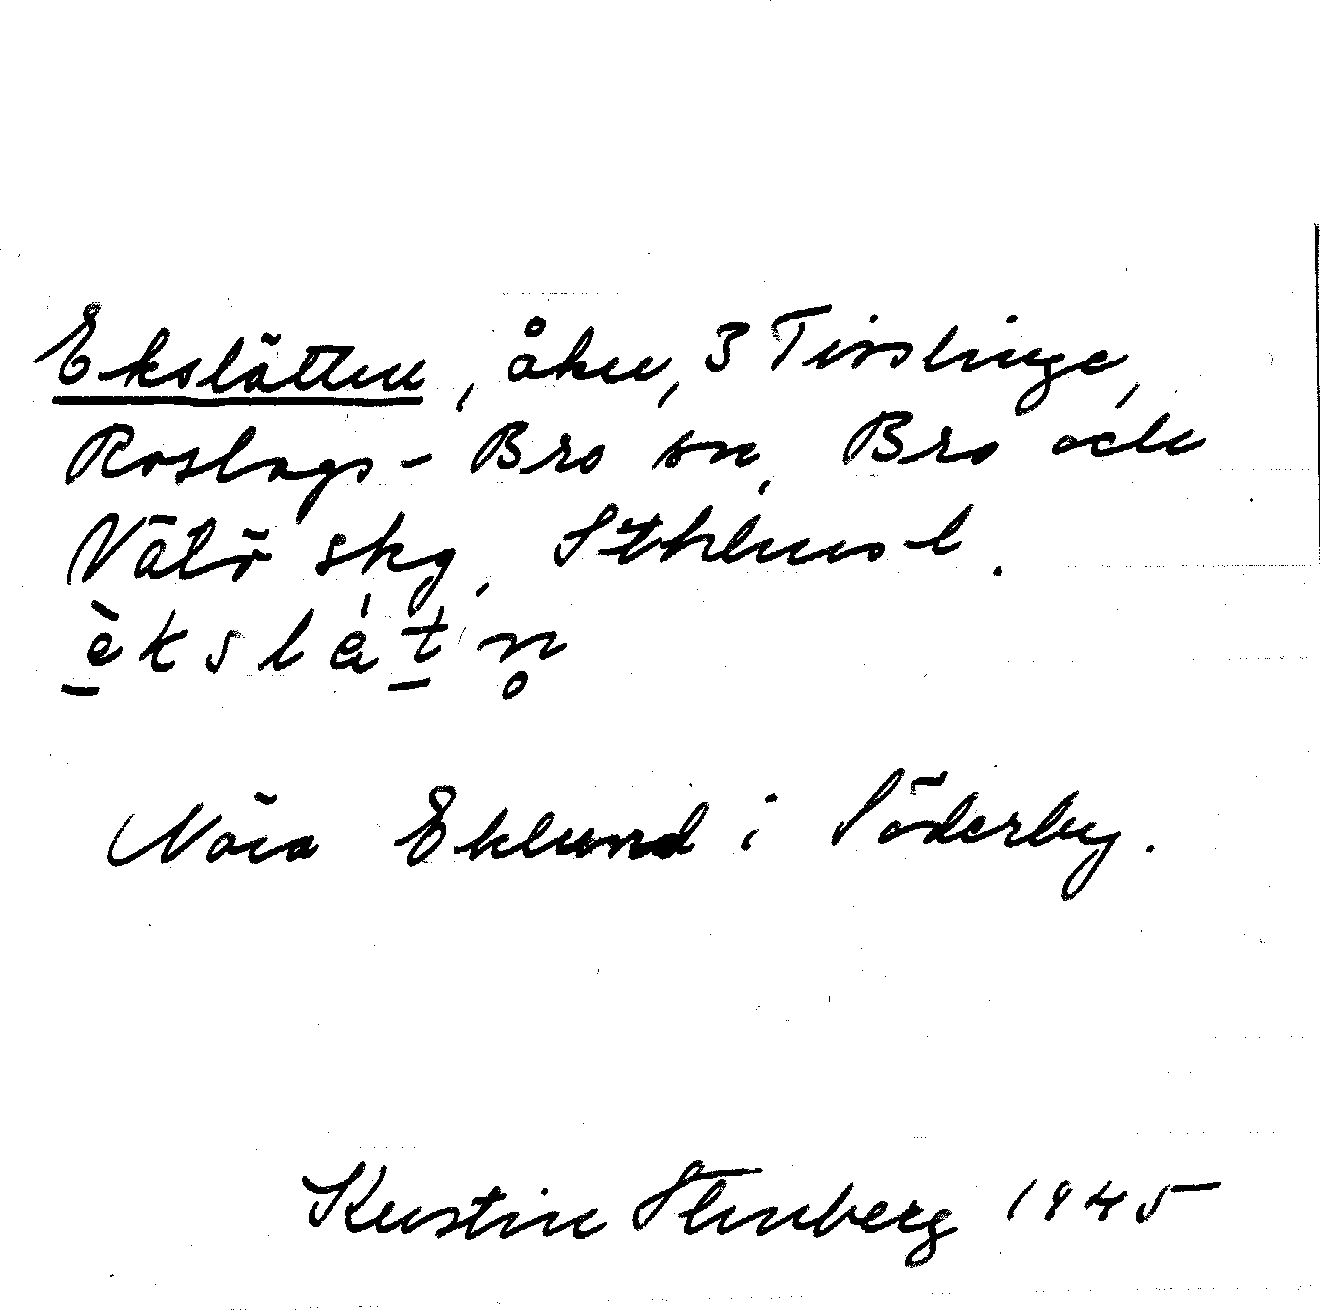 Ekslätten, åker, 3 Tisslinge,
Roslags-Bro sn, Bro och
Vätö skg, Sthlms l.
èkslátn̥
Nära Eklund i Söderby.
Kerstin Stenberg 1945